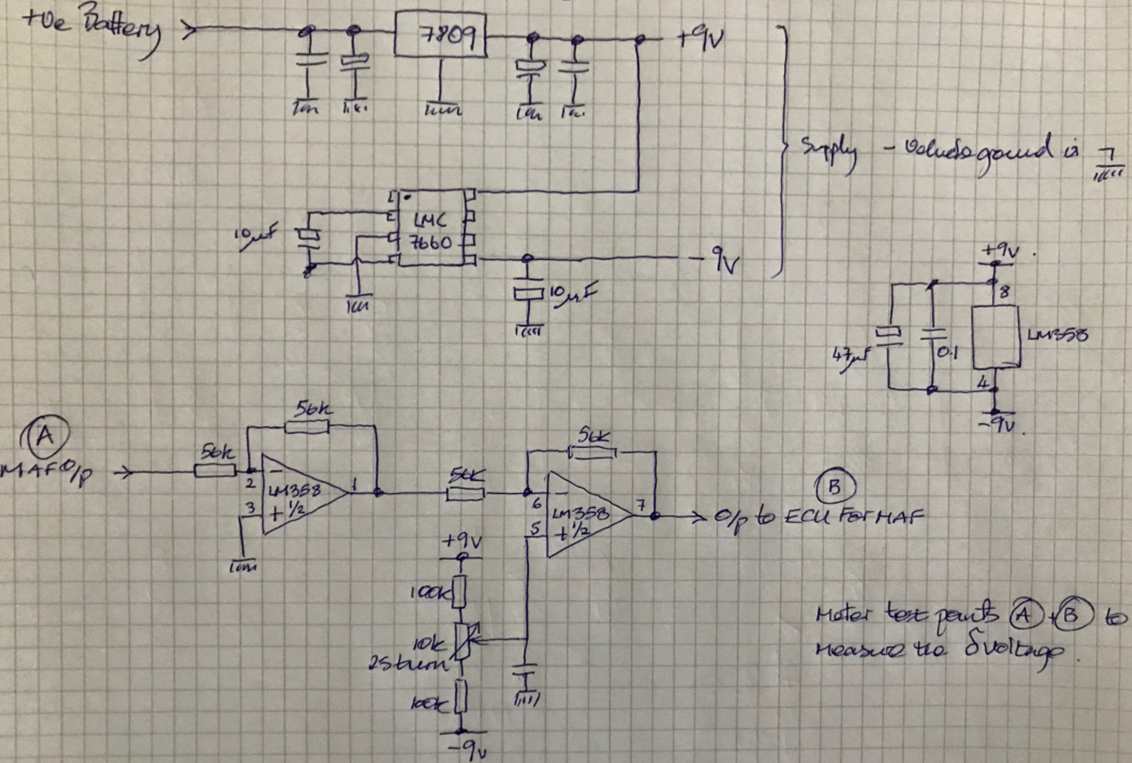 +ve Battery
7809
+9V
Supply - Vehicle ground is
10µF
LMC
7660
-9V
10µF
+9V.
8
LM358
47µF
0.1
4
-9V.
A
MAF O/p
56k
56k
2
3
-
+
LM358
1/2
1
56k
56k
6
5
-
+
LM358
1/2
7
B
O/p to ECU For MAF
+9V
100k
10k
25 turn
100k
-9V
Meter test points A + B to
measure the δvoltage.